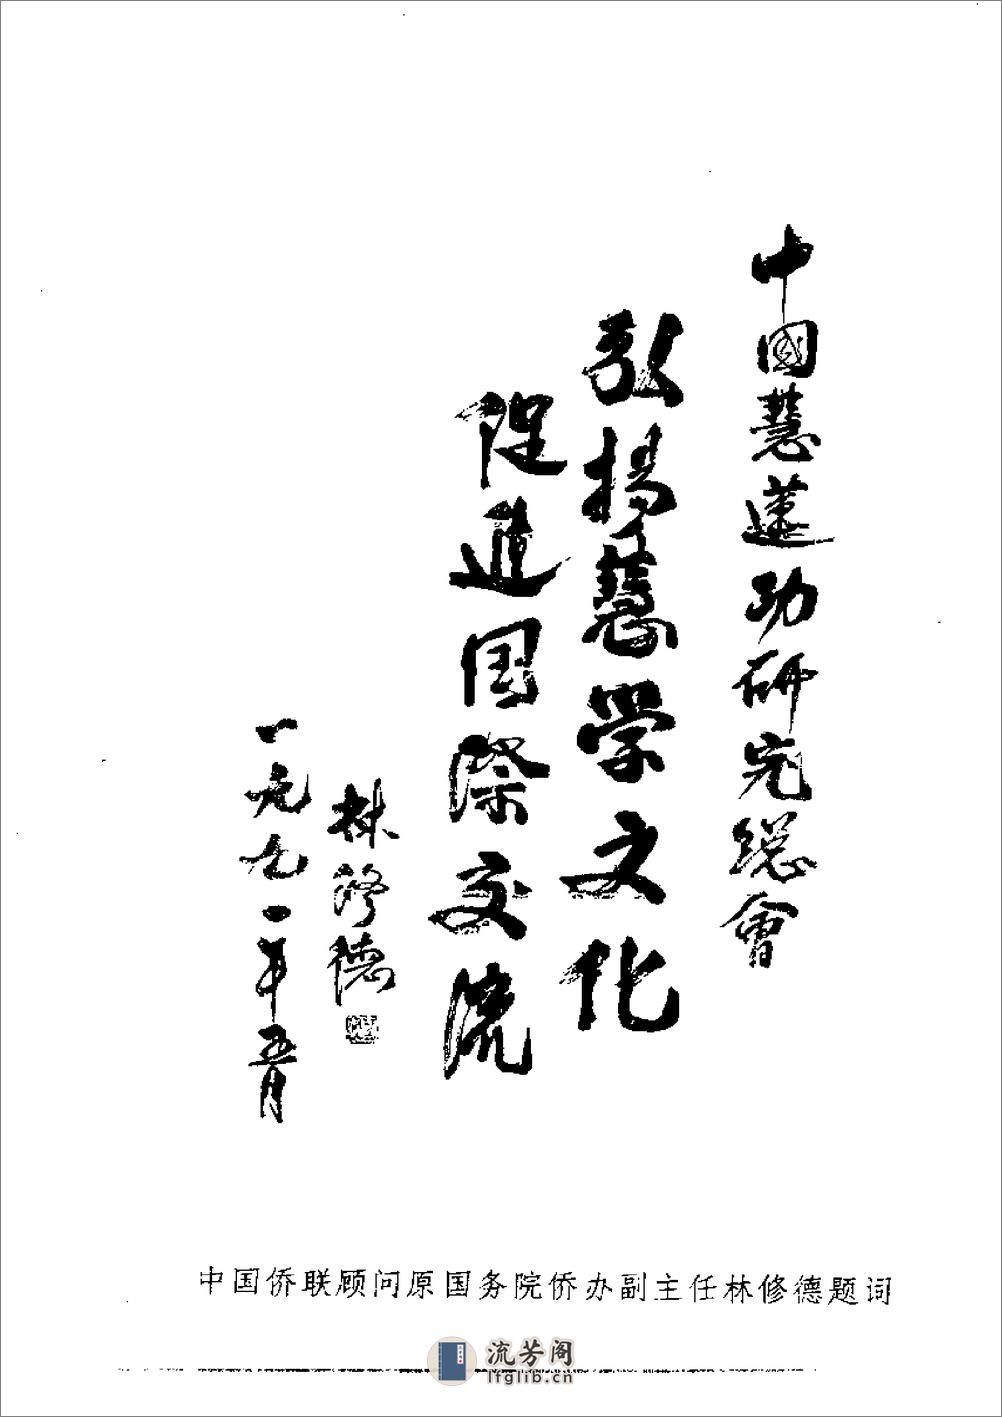 中國慧蓮功研究總會
弘揚慧学文化
促進国際交流
林修德
一九九一年五月
中国侨联顾问原国务院侨办副主任林修德题词
流芳阁
lfglib.cn